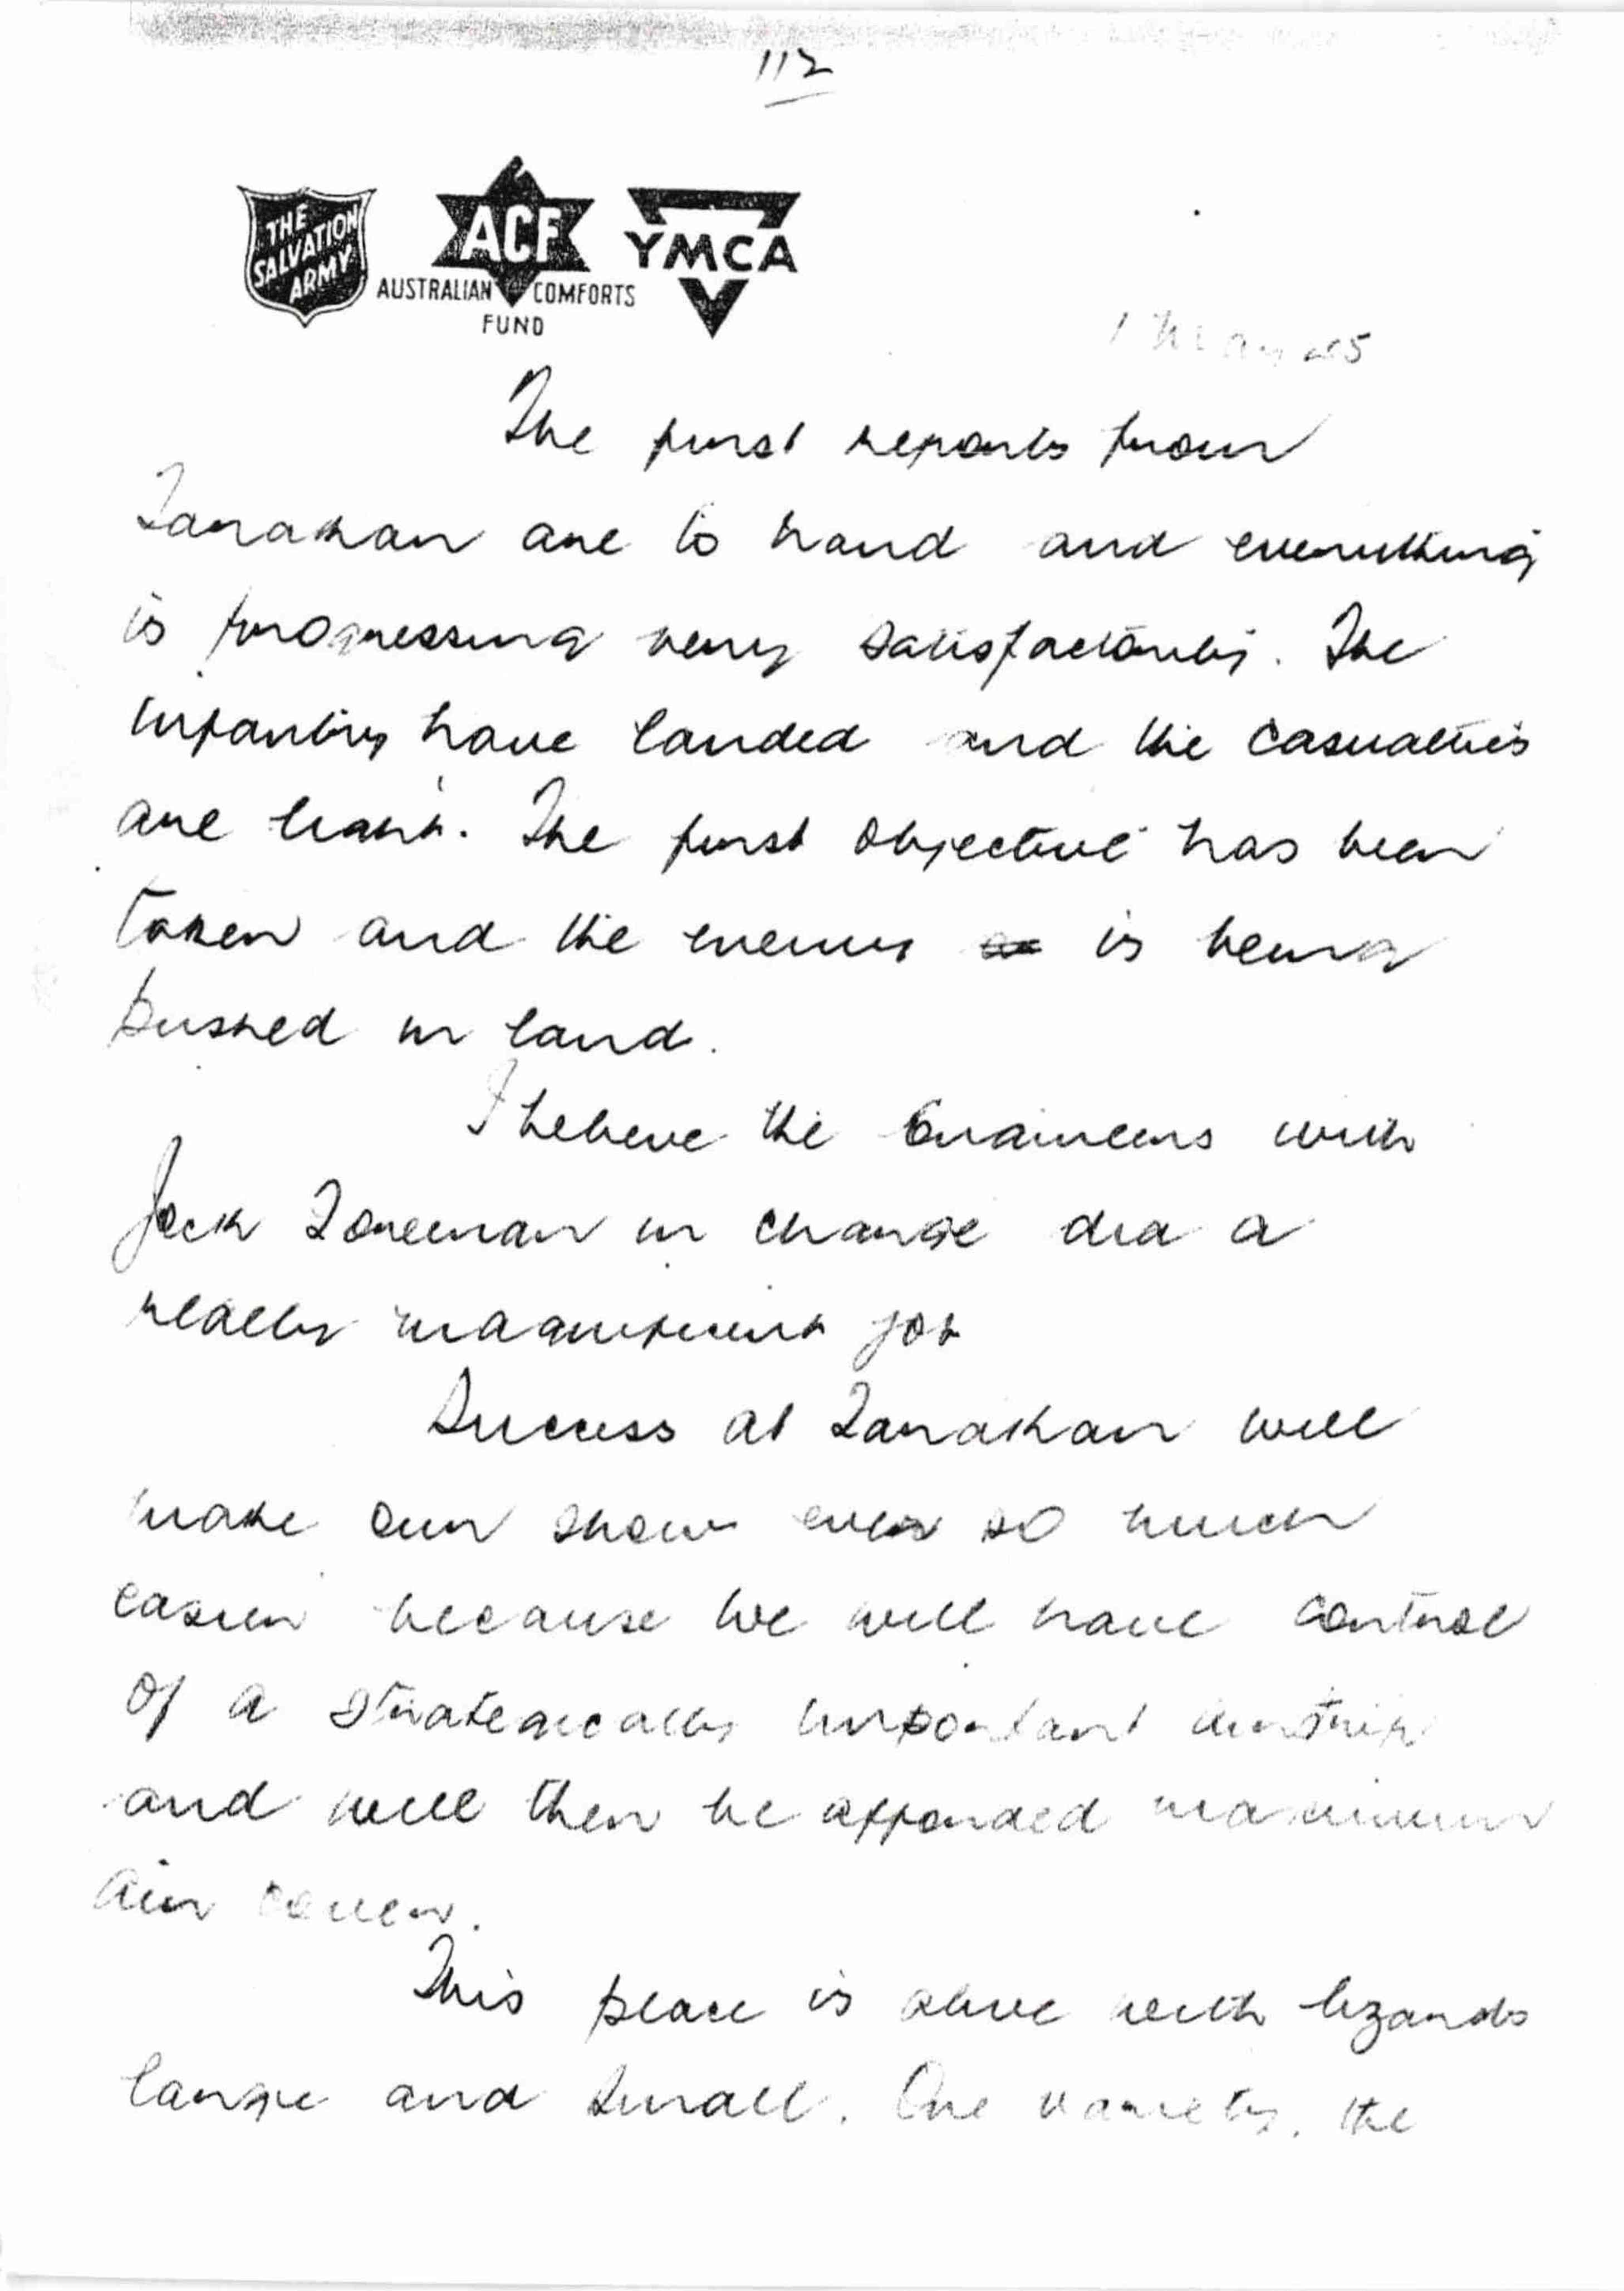 112
THE
SALVATION
ARMY
ACF
AUSTRALIAN COMFORTS
FUND
YMCA
1 May 45
The first reports from
Tarakan are to hand and everything
is progressing very satisfactorily. The
infantry have landed and the casualties
are light. The first objective has been
taken and the enemy is being
pushed in land.
I believe the Engineers with
Jock in charge did a
really magnificent job
Success at Tarakan will
make our show ever so much
easier because we will have control
of a strategically important airstrip
and will then be afforded maximum
air cover.
This place is alive with lizards
large and small. One variety, the